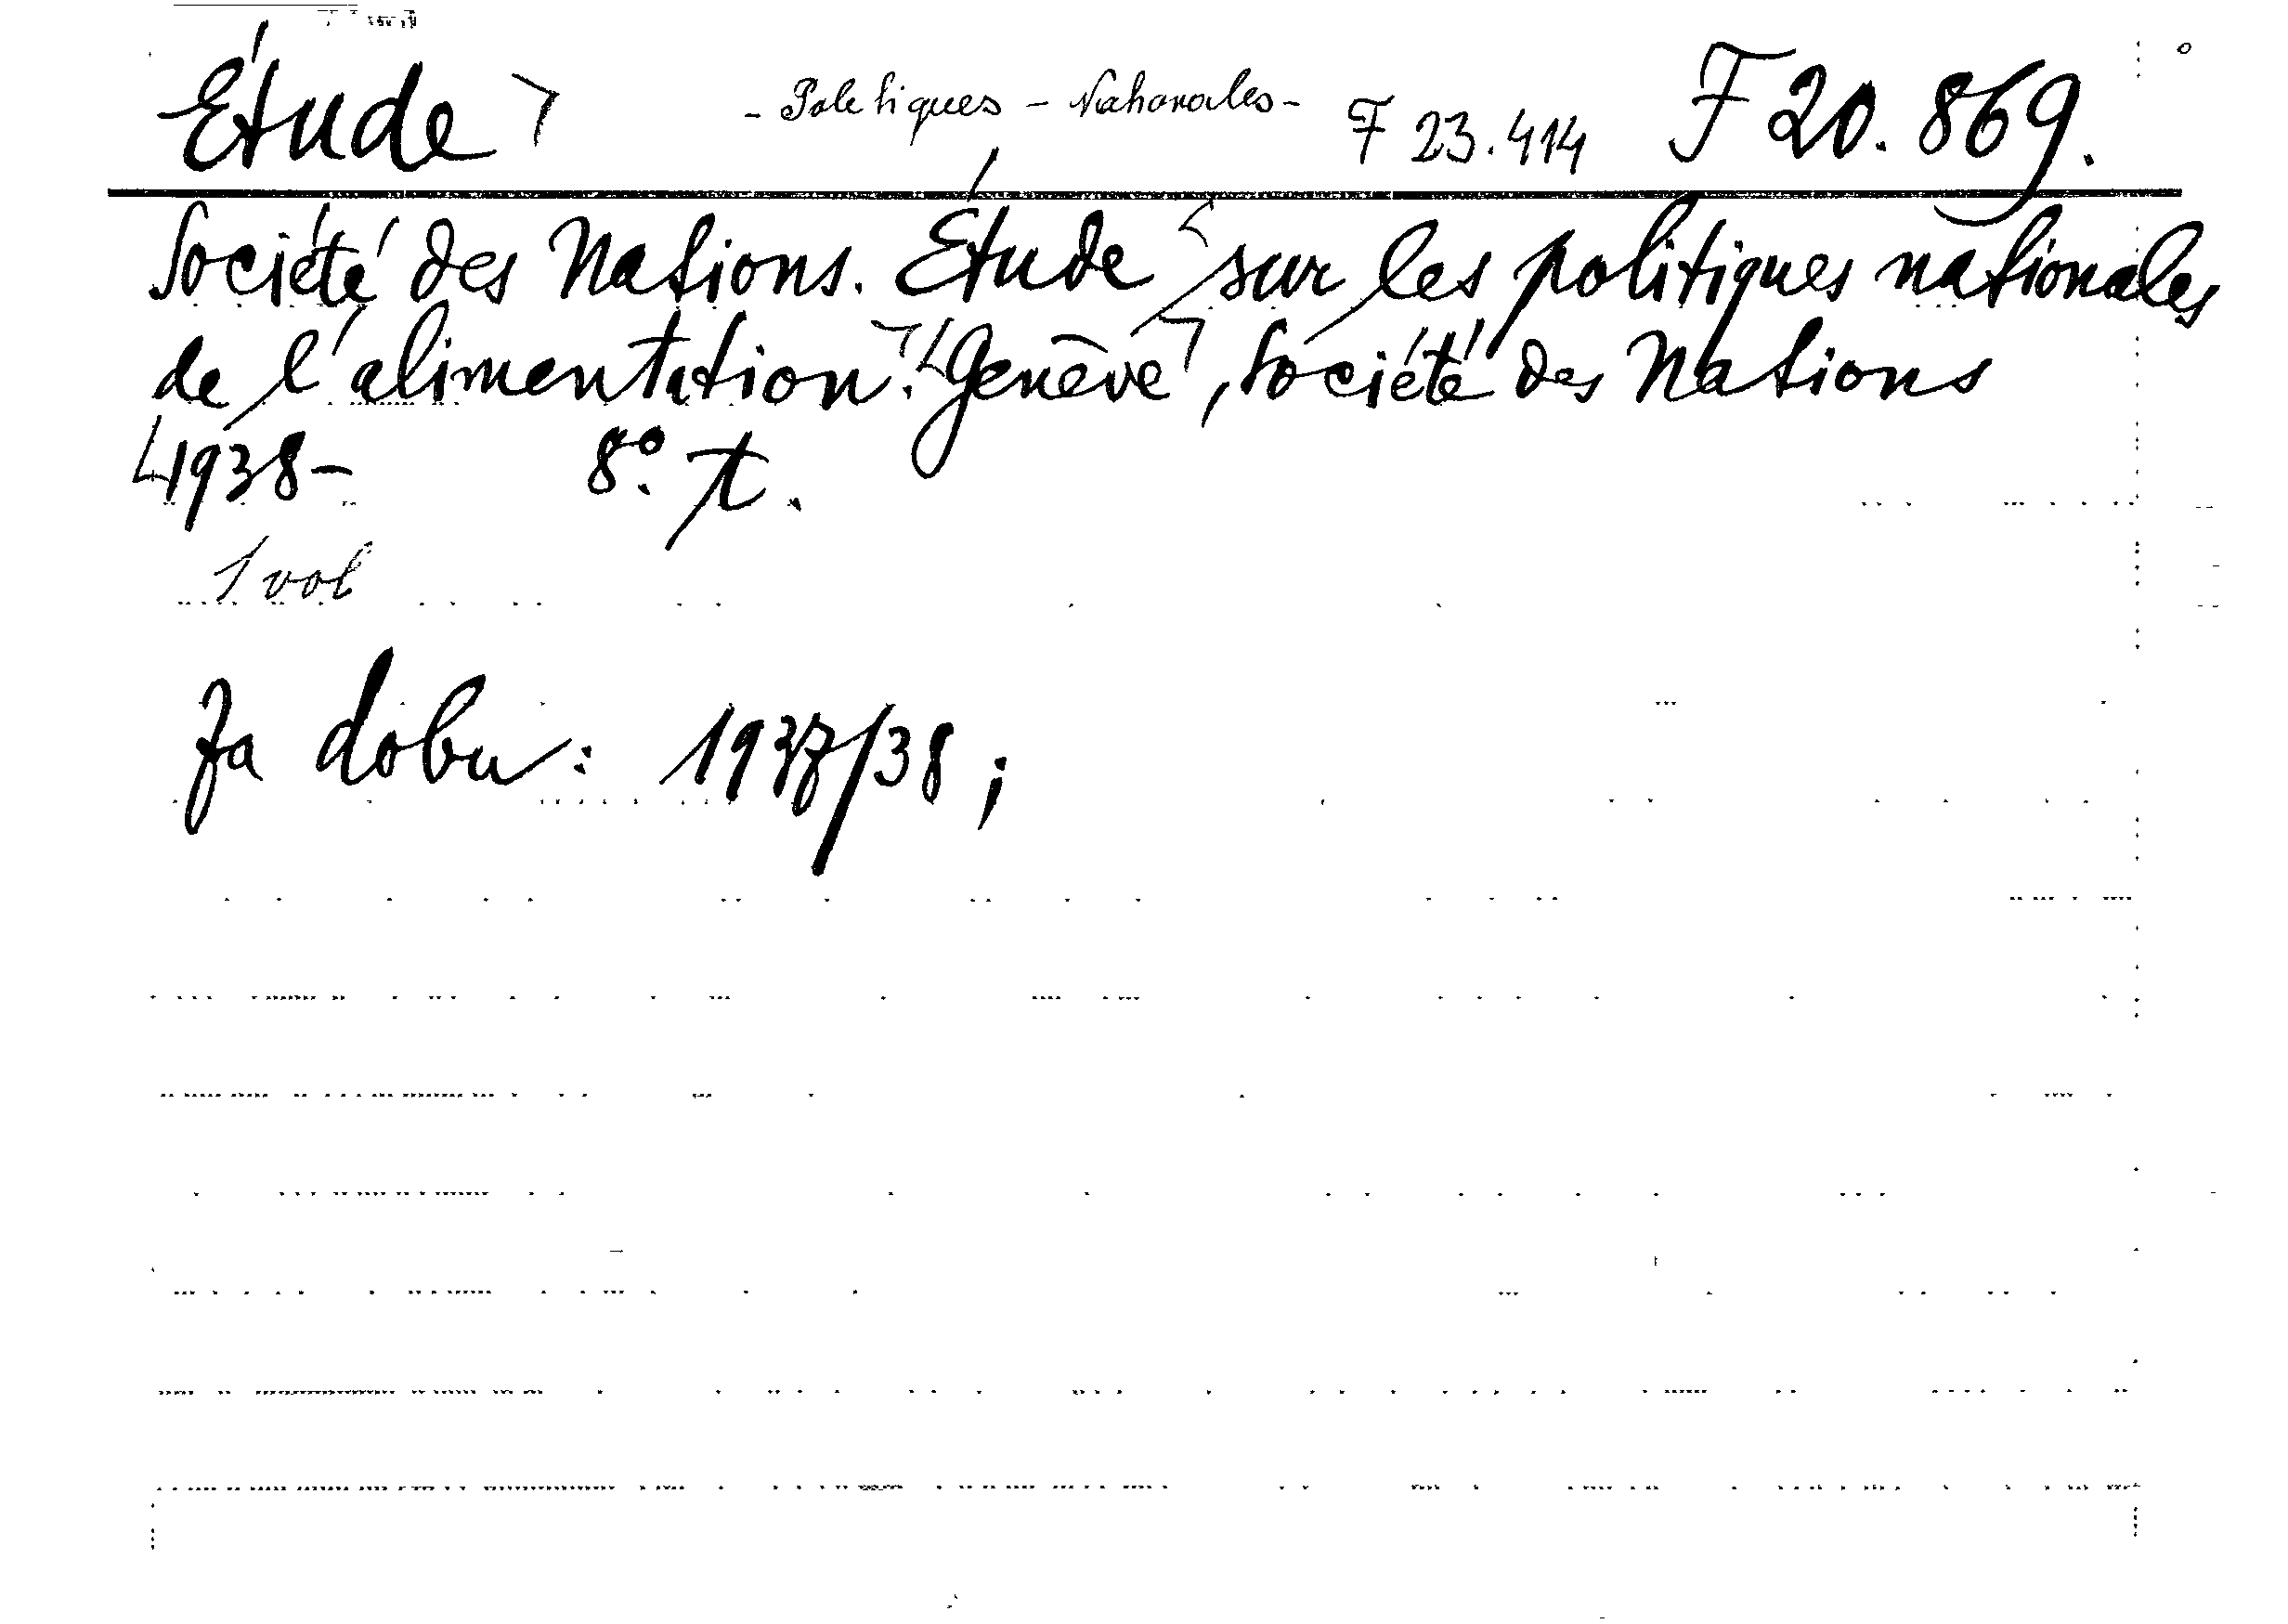 Étude - Politiques - Nationales - F 23.414 F 20.869.
Société des Nations. Étude sur les politiques nationales
de l'alimentation. Genève, Société des Nations
1938- 8° t.
1 vol
Za dobu: 1937/38;